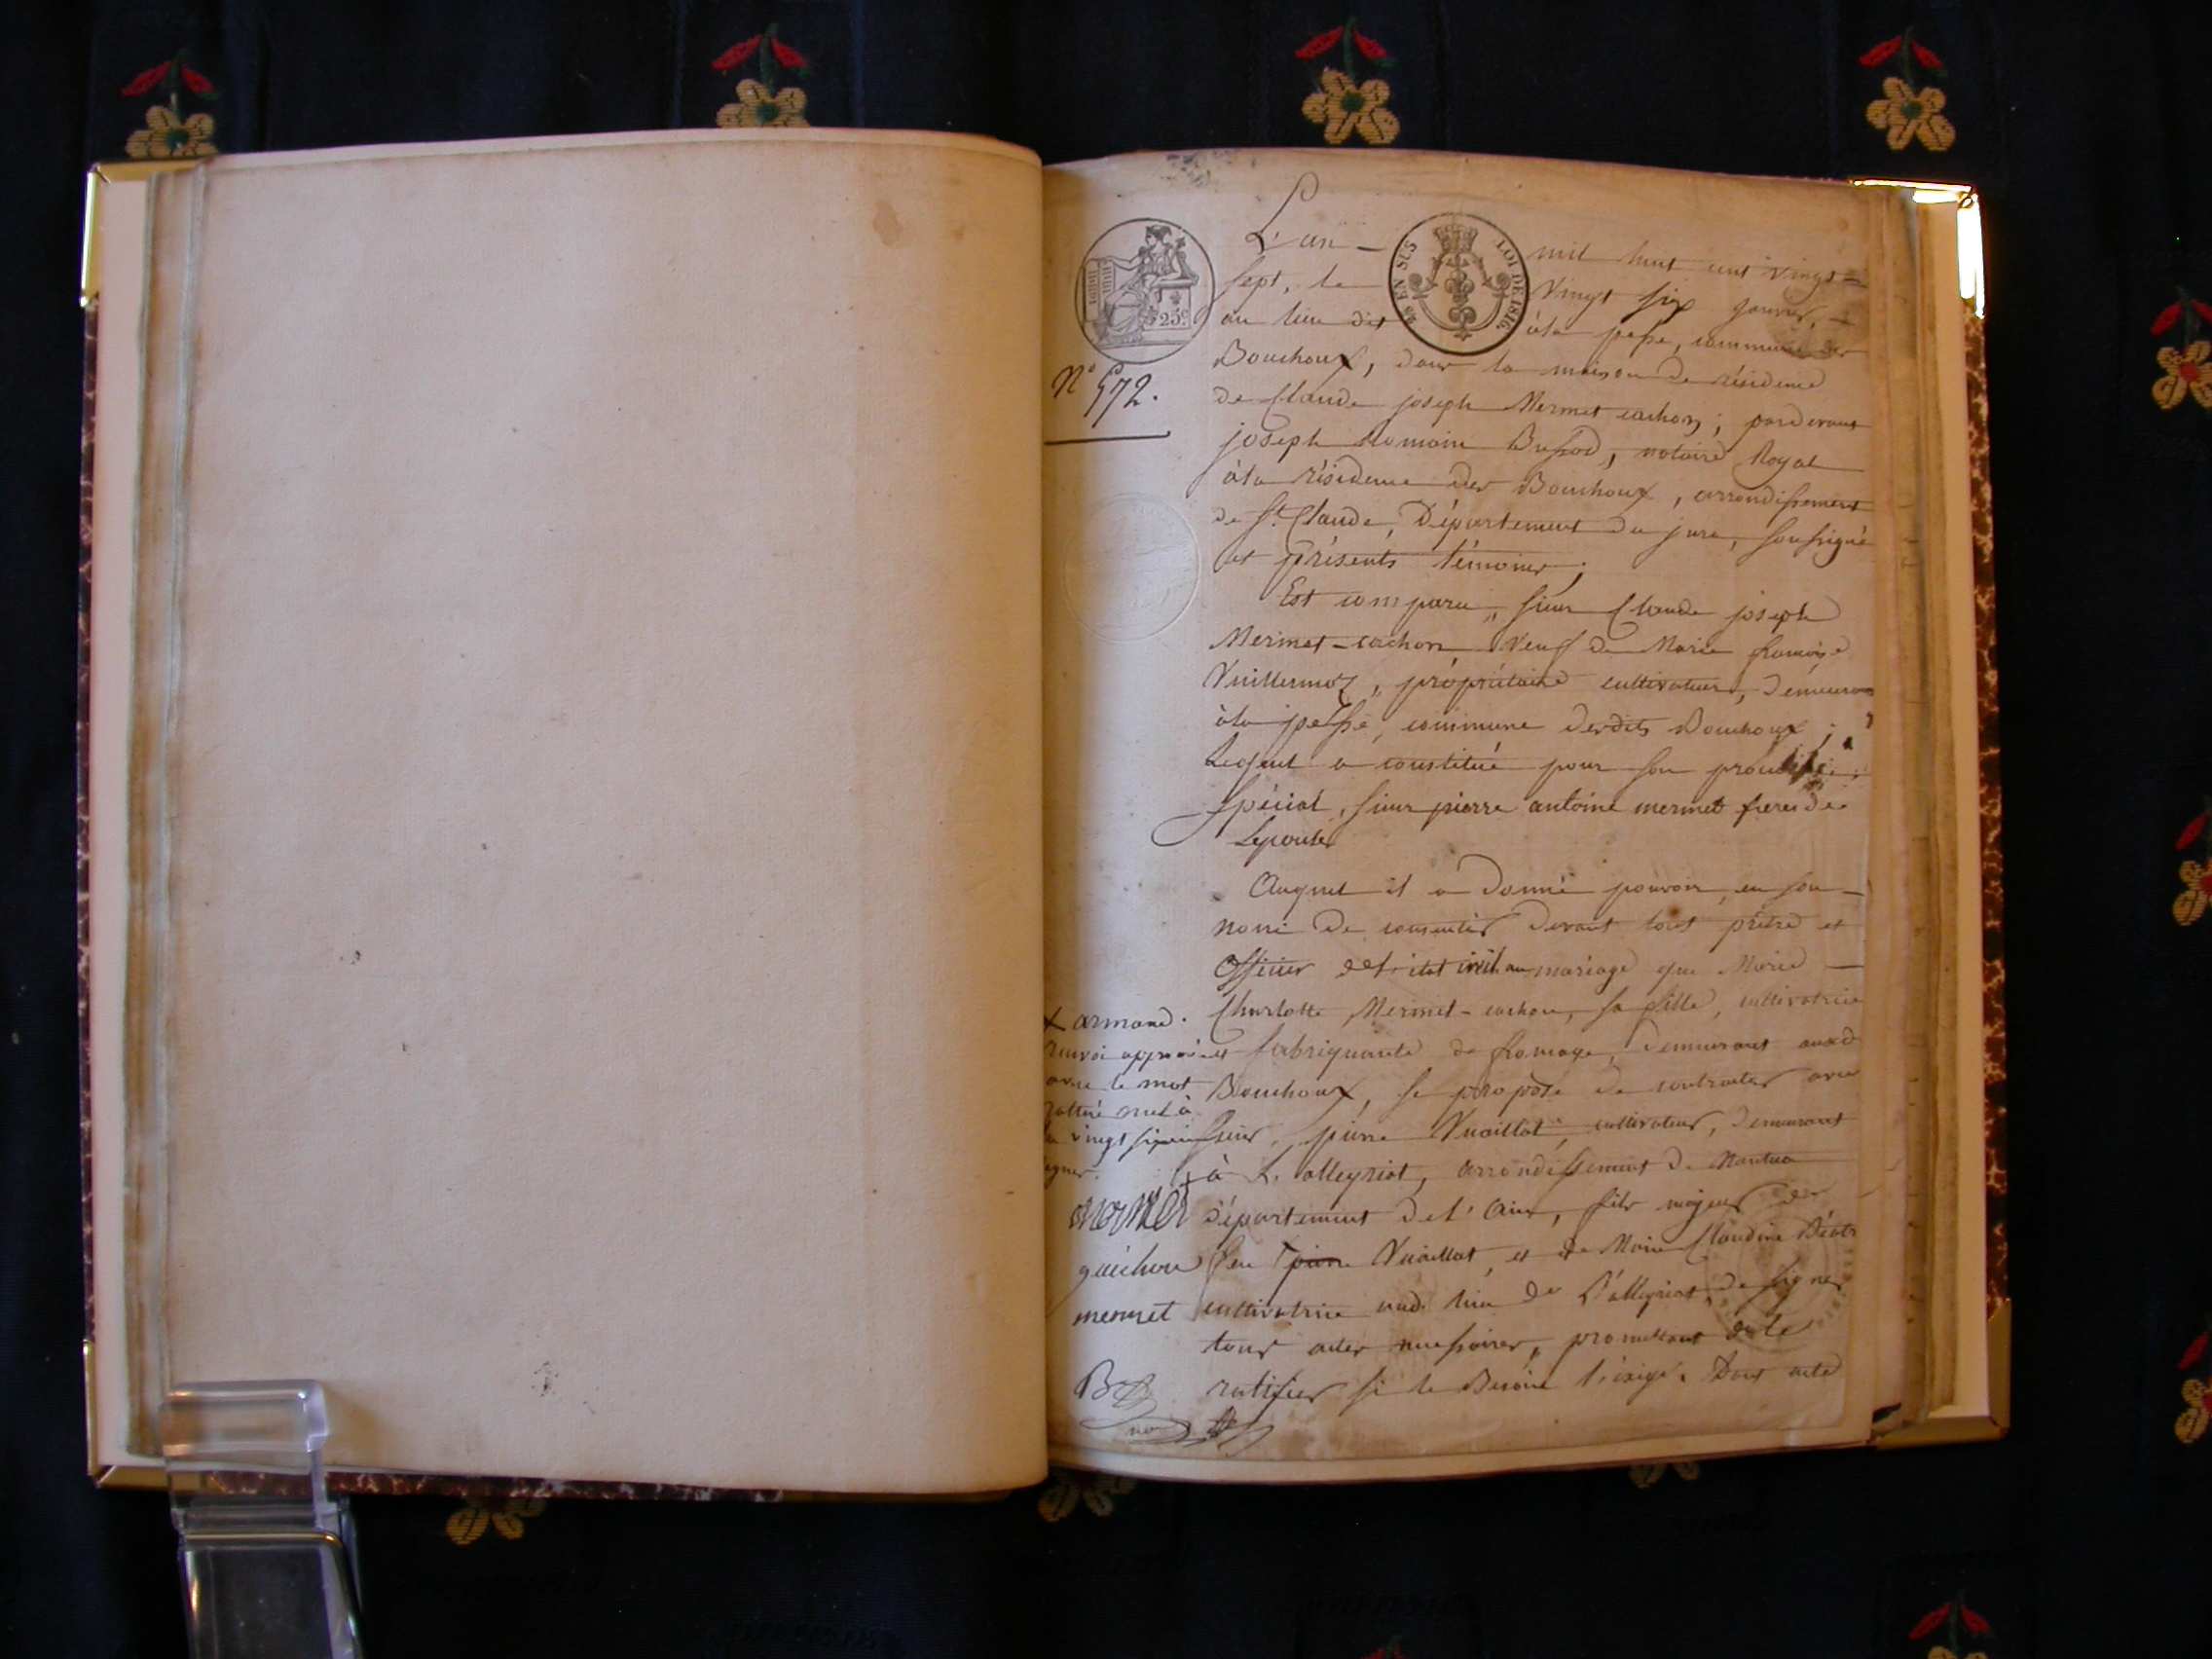 L'an mil huit cent vingt-
sept, le vingt six janvier,
au lieu dit à la pesse, commune des
Bouchoux, dans la maison de résidence
de Claude joseph Mermet cachon; pardevant
joseph Romain Bussod, notaire Royal
à la résidence des Bouchoux, arrondissement
de St. Claude, Département du jura, soussigné
et présents témoins;
Est comparu, sieur Claude joseph
Mermet-cachon, Veuf de Marie françoise
Vuillermoz, propriétaire cultivateur, demeurant
à la pesse, commune desdits Bouchoux;
Lequel a constitué pour son
Spécial, sieur pierre antoine mermet frere de
Lepouse
Auquel il a donné pouvoir, en son
nom de consentir devant tous prêtre et
officier de l'état civil au mariage que Marie
Charlotte Mermet-cachon, sa fille, cultivatrice
et fabriquante de fromage, demeurant auxd
Bouchoux, se propose de contracter avec
sieur pierre Vuaillat, cultivateur, demeurant
à L'alleyriat, arrondissement de Nantua
département de l'Ain, fils majeur de
feu pierre Vuaillat, et de Marie Claudine
cultivatrice aud. lieu de L'alleyriat, de signer
tous actes nécessaires, promettant de le
ratifier si le Besoin l'éxige. Dont acte
25c.
25 EN SUS
LOI DE 1816.
N° 572.
x armand.
renvoi approuvé
avec le mot
nul à
vingt six
mermet